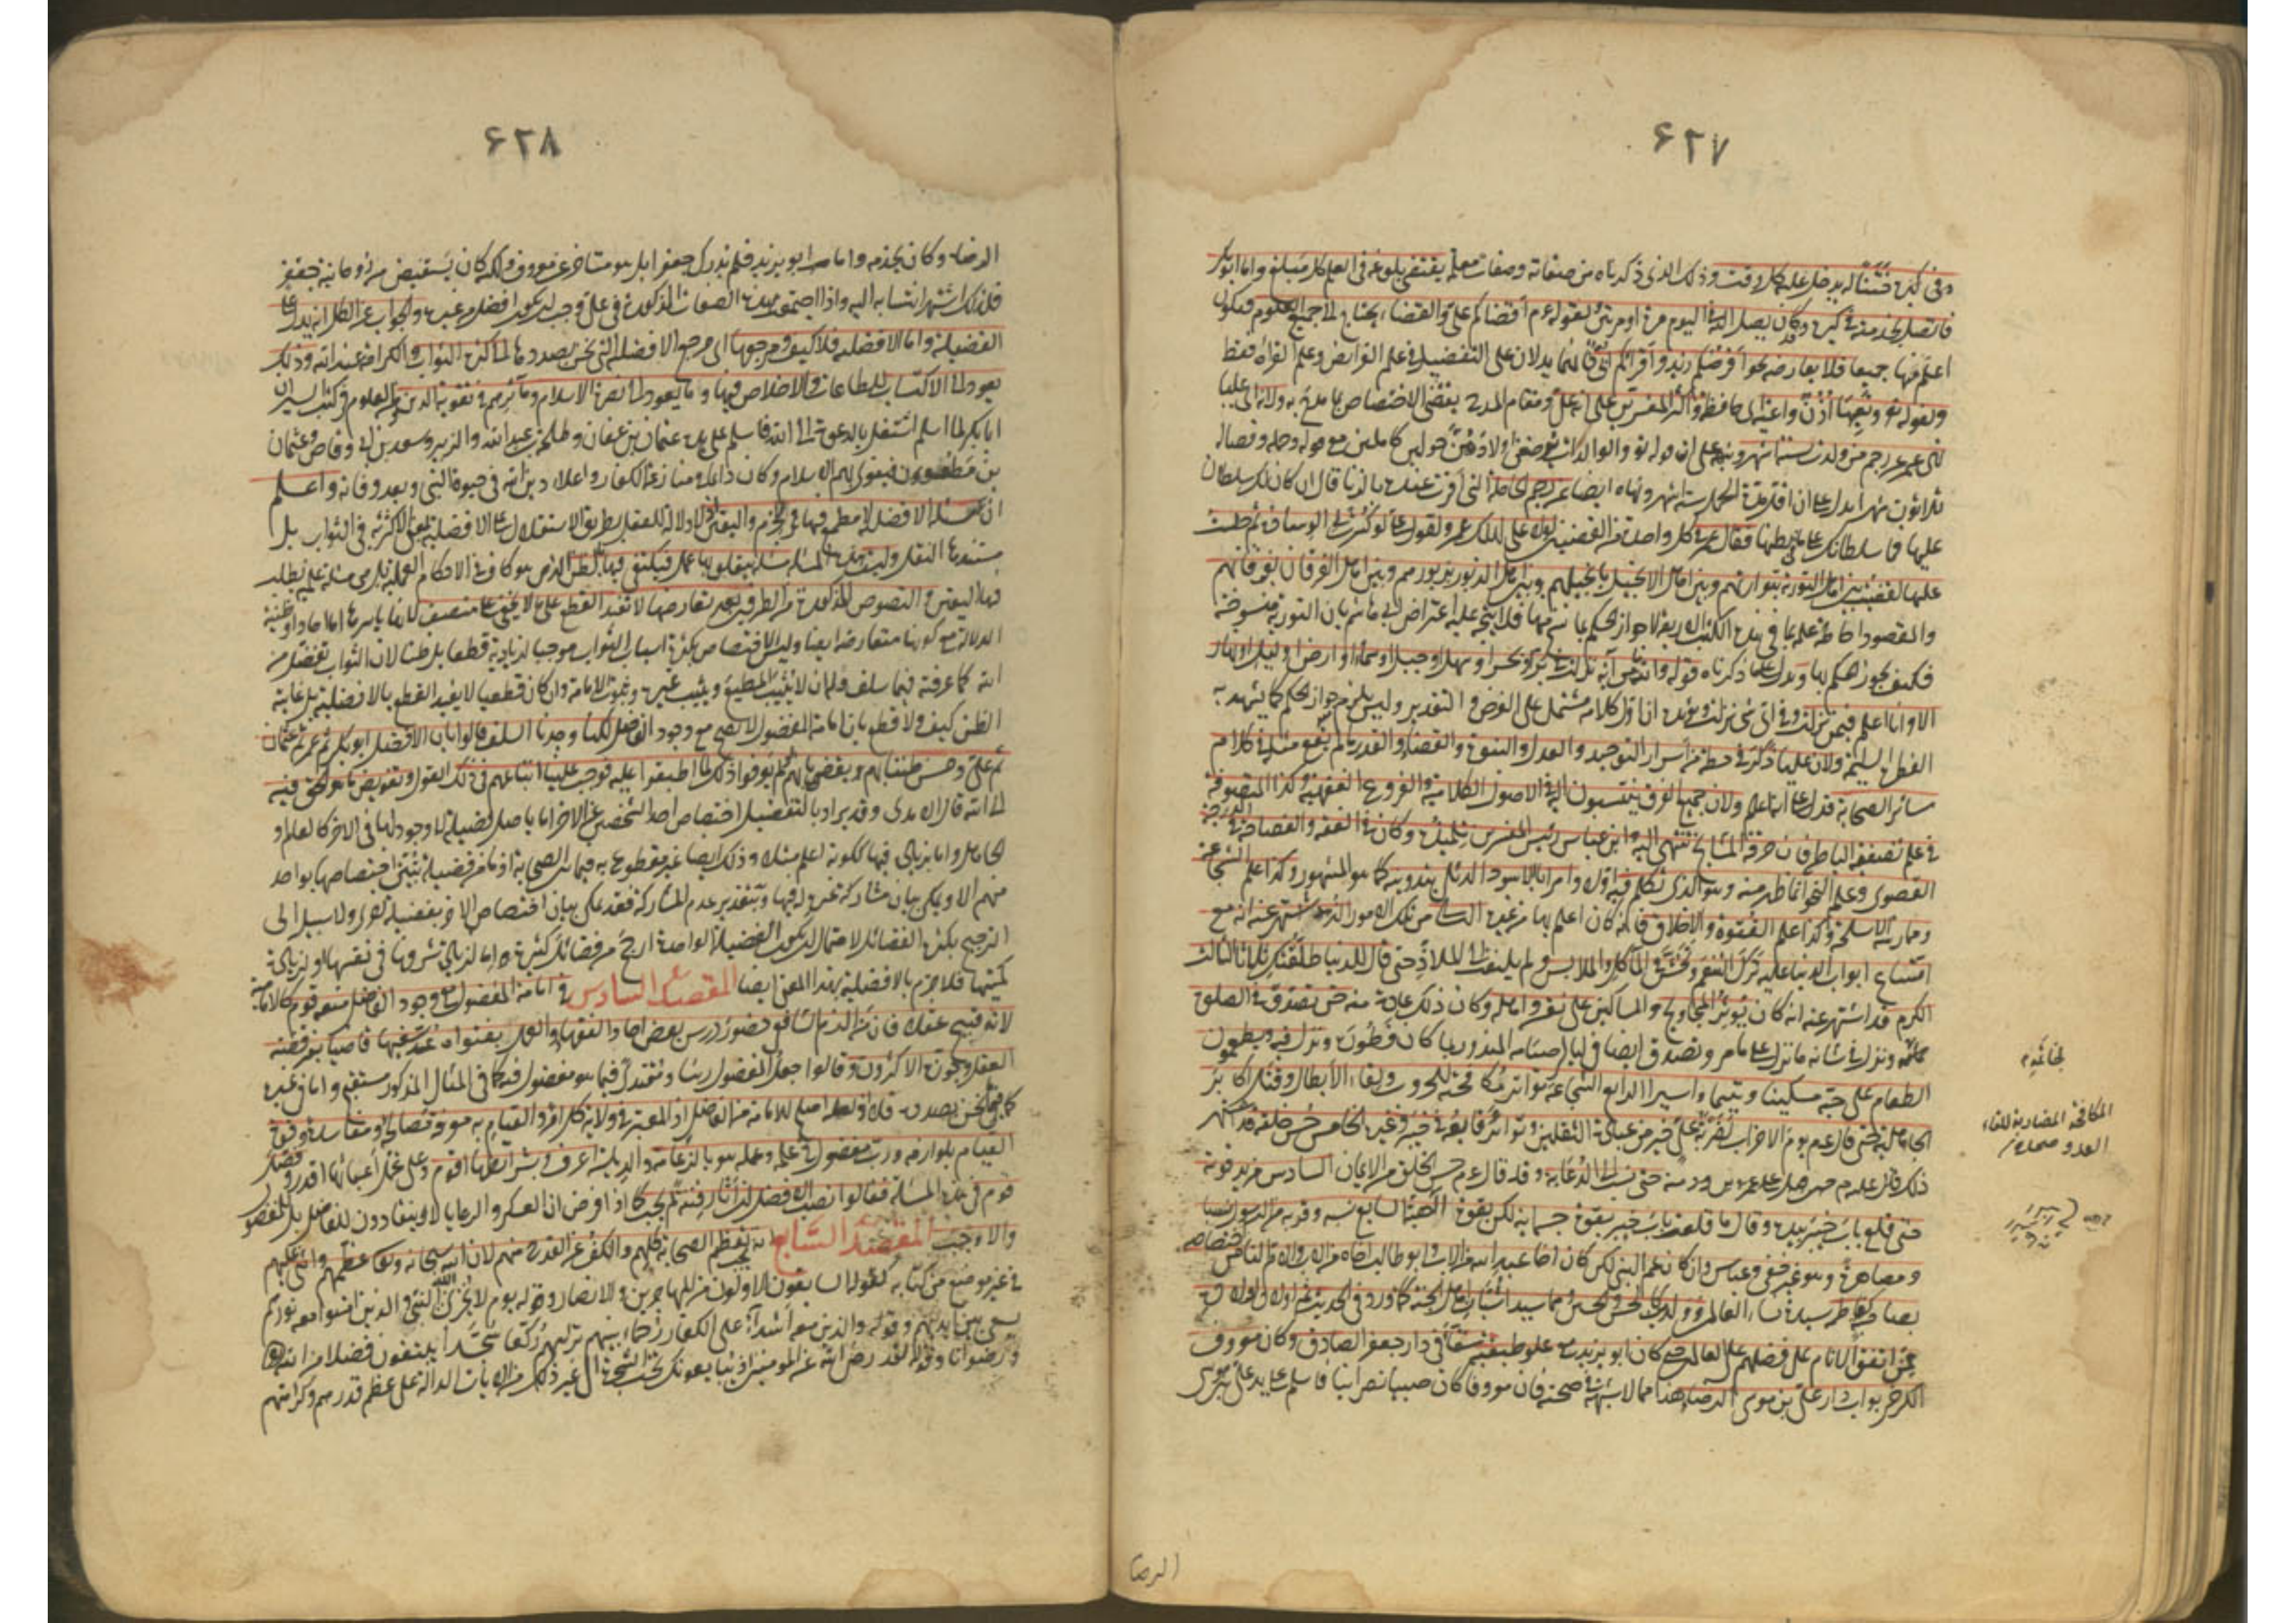 ٦٢٧
وفى كبره ختنا له يدخل عليه كل وقت وذلك الذى ذكرناه من صفاته وصفات معلمه يقتضى بلوغه فى العلم كل مبلغ واما ابو بكر
فاتصل بخدمته فى كبره وكان يصل اليه فى اليوم مرة او مرتين لقوله عم اقضاكم على والقضاء يحتاج الى جميع العلوم فيكون
اعلم منها جميعا فلا يعارضه نحو افرضكم زيد واقرأكم ابى فانهما يدلان على التفضيل فى علم الفرائض وعلم القراة فقط
ولقوله تع وتعيها اذن واعية اى حافظة واكثر المفسرين على انه على ومقام المدح يقتضى الاختصاص بما مدح به ولانه اى عليا
نهى عمر عن رجم من ولدت لستة اشهر ونبهه على ان قوله تع والوالدات يرضعن اولادهن حولين كاملين مع قوله وحمله وفصاله
ثلاثون شهرا يدل على ان اقل مدة الحمل ستة اشهر ونهاه ايضا عن رجم الحاملة التى اقرت عنده بالزنا قال ان كان لك سلطان
عليها فما سلطانك على ما فى بطنها فقال عمر فى كل واحدة من القضيتين لولا على لهلك عمر ولقول على لو كسرت لى الوسادة ثم جلست
عليها لقضيت بين اهل التورية بتوراتهم وبين اهل الانجيل بانجيلهم وبين اهل الزبور بزبورهم وبين اهل الفرقان بفرقانهم
والمقصود احاطة علمه بما فى هذه الكتب الاربعة لا جواز الحكم بما نسخ منها فلا يتجه عليه اعتراض ابى هاشم بان التورية منسوخة
فكيف يجوز الحكم بها ويدل على ما ذكرناه قوله والله ما من آية نزلت فى بر او بحر او سهل او جبل او سماء او ارض او ليل او نهار
الا وانا اعلم فيمن نزلت وفى اى شئ نزلت ويؤيده ان اول كلامه مشتمل على الفرض والتقدير وليس يلزم منه جواز الحكم كما يشهد به
الفطرة السليمة ولان عليا ذكر فى خطبه من اسرار التوحيد والعدل والنبوة والقضاء والقدر ما لم يقع مثله فى كلام
سائر الصحابة فدل على انه اعلم ولان جميع الفرق ينتسبون اليه فى الاصول الكلامية والفروع الفقهية وكذا المتصوفة
فى علم تصفية الباطن فان خرقة المشايخ تنتهى اليه وابن عباس رئيس المفسرين تلميذه وكان فى الفقه والفصاحة فى الدرجة
القصوى وعلم النحو انما ظهر منه وهو الذى تكلم فيه اولا وامر ابا الاسود الدئلى بتدوينه كما هو المشهور وكذا علم الشجاعة
وممارسة الاسلحة وكذا علم الفتوة والاخلاق فانه كان اعلم بها من غيره الثانى من تلك الامور الزهد اشتهر عنه انه مع
اتساع ابواب الدنيا عليه ترك التنعم وتخشن فى المآكل والملابس ولم يلتفت الى الملاذ حتى قال للدنيا طلقتك ثلاثا الثالث
الكرم قد اشتهر عنه انه كان يؤثر المحاويج والمساكين على نفسه واهله وكان ذلك عادة منه حتى تصدق فى الصلوة
بخاتمه ونزل فى شانه ما نزل على ما مر وتصدق ايضا فى ليالى صيامه المنذور بما كان فطوره ونزل فيه ويطعمون
الطعام على حبه مسكينا ويتيما واسيرا الرابع الشجاعة تواتر مكافحته للحروب ولقاء الابطال وقتل اكابر
الجاهلية حتى قال عم يوم الاحزاب لضربة على خير من عبادة الثقلين وتواتر وقايعه فى خيبر وغيره الخامس حسن خلقه قد اشتهر
ذلك حتى نسب الى الدعابة وقد قال عم حسن الخلق من الايمان السادس مزيد قوته
حتى قلع باب خيبر بيده وقال ما قلعت باب خيبر بقوة جسمانية لكن بقوة الهية السابع نسبه وقربه من الرسول نسبا
ومصاهرة وهو غير خفى وعباس وان كان عم النبى لكن كان اخا عبد الله من الاب وابو طالب اخاه من الاب والام الثامن اختصاصه
بصاحبة كفاطمة سيدة نساء العالمين وولدين كالحسن والحسين وهما سيدا شباب اهل الجنة كما ورد فى الحديث ثم اولاد اولاده
ممن اتفق الانام على فضلهم على العالمين حتى كان ابو يزيد مع علو طبقته سقاء فى دار جعفر الصادق وكان معروف
الكرخى بواب دار على بن موسى الرضا هذا مما لا شبهة فى صحته فان معروفا كان صبيا نصرانيا فاسلم على يد على بن موسى
بخاتمه
المكافحة المضاربة للقاء
العدو
(الرضا)
٦٢٨
الرضا وكان يخدمه واما ابو يزيد فلم يدرك جعفرا بل هو متاخر عن معروف ولكنه كان يستفيض من روحانية جعفر
فلذلك اشتهر انتسابه اليه واذا اجتمعت هذه الصفات المذكورة فى على وجب ان يكون افضل من غيره والجواب عن الكل انه يدل على
الفضيلة واما الافضلية فلا كيف ومرجعها اى مرجع الافضلية التى نحن بصددها الى كثرة الثواب والكرامة عند الله وذلك
يعود الى الاكتساب للطاعات والاخلاص فيها وما يعود الى نصرة الاسلام ومآثرهم فى تقوية الدين ومن المعلوم فى كتب السير ان
ابا بكر لما اسلم اشتغل بالدعوة الى الله فاسلم على يده عثمان بن عفان وطلحة بن عبيد الله والزبير وسعد بن ابى وقاص وعثمان
بن مظعون فتقوى بهم الاسلام وكان دائما فى منازعة الكفار واعلاء دين الله فى حيوة النبى وبعد وفاته واعلم
ان مسئلة الافضلية لا مطمع فيها فى الجزم واليقين اذ لا دلالة للعقل بطريق الاستقلال على الافضلية بمعنى الاكثرية فى الثواب بل
مستندها النقل وليست هذه المسئلة مسئلة يتعلق بها عمل فيكتفى فيها بالظن الذى هو كاف فى الاحكام العملية بل هى مسئلة علمية يطلب
فيها اليقين والنصوص المذكورة من الطرفين بعد تعارضها لا تفيد القطع على ما لا يخفى على منصف لانها باسرها اما احاد او ظنية
الدلالة مع كونها متعارضة ايضا وليس الاختصاص بكثرة اسباب الثواب موجبا لزيادته قطعا بل ظنا لان الثواب تفضل من
الله كما عرفته فيما سلف فله ان لا يثيب المطيع ويثيب غيره وثبوت الامامة وان كان قطعيا لا يفيد القطع بالافضلية بل غايته
الظن كيف ولا قطع بان امامة المفضول لا تصح مع وجود الفاضل لكنا وجدنا السلف قالوا بان الافضل ابو بكر ثم عمر ثم عثمان
ثم على وحسن ظننا بهم يقضى بانهم لو لم يعرفوا ذلك لما اطبقوا عليه فوجب علينا اتباعهم فى ذلك القول وتفويض ما هو الحق فيه
الى الله قال الامدى وقد يراد بالتفضيل اختصاص احد الشخصين عن الاخر اما باصل فضيلة لا وجود لها فى الاخر كالعالم و
الجاهل واما بزيادة فيها ككونه اعلم مثلا وذلك ايضا غير مقطوع به فيما بين الصحابة اذ ما من فضيلة تبين اختصاصها بواحد
منهم الا ويمكن بيان مشاركة غيره له فيها وبتقدير عدم المشاركة فقد يمكن بيان اختصاص الاخر بفضيلة اخرى ولا سبيل الى
الترجيح بكثرة الفضائل لاحتمال ان يكون الفضيلة الواحدة ارجح من فضائل كثيرة اما لزيادة شرفها فى نفسها او لزيادة
كميتها فلا جزم بالافضلية بهذا المعنى ايضا المقصد السادس فى امامة المفضول مع وجود الفاضل منعه قوم كالامامية
لانه قبيح عقلا فان من الزم الشافعى حضور درس بعض احاد الفقهاء والعمل بفتواه عد سفيها قاضيا بغير قضية
العقل وجوزه الاكثرون وقالوا جعل المفضول رئيسا ومقتدى فيما هو مفضول فيه كما فى المثال المذكور مستقبح واما فى غيره
كما فيما نحن بصدده فلا اذ لعله اصلح للامامة من الفاضل اذ المعتبر فى ولاية كل امر والقيام به معرفة مصالحه ومفاسده وقوة
القيام بلوازمه ورب مفضول فى علمه وعمله هو بالزعامة والرياسة اعرف وبشرائطها اقوم وعلى تحمل اعبائها اقدر وفصل
قوم فى هذه المسئلة فقالوا نصب الافضل ان اثار فتنة لم يجب كما اذا فرض ان العسكر والرعايا لا ينقادون للفاضل بل للمفضول
والا وجب المقصد السابع انه يجب تعظيم الصحابة كلهم والكف عن القدح فيهم لان الله سبحانه وتعالى عظمهم واثنى عليهم
فى غير موضع من كتابه كقوله السابقون الاولون من المهاجرين والانصار وقوله يوم لا يخزى الله النبى والذين امنوا معه نورهم
يسعى بين ايديهم وقوله والذين معه اشداء على الكفار رحماء بينهم تريهم ركعا سجدا يبتغون فضلا من الله
ورضوانا وقوله لقد رضى الله عن المومنين اذ يبايعونك تحت الشجرة الى غير ذلك من الايات الدالة على عظم قدرهم وكرامتهم